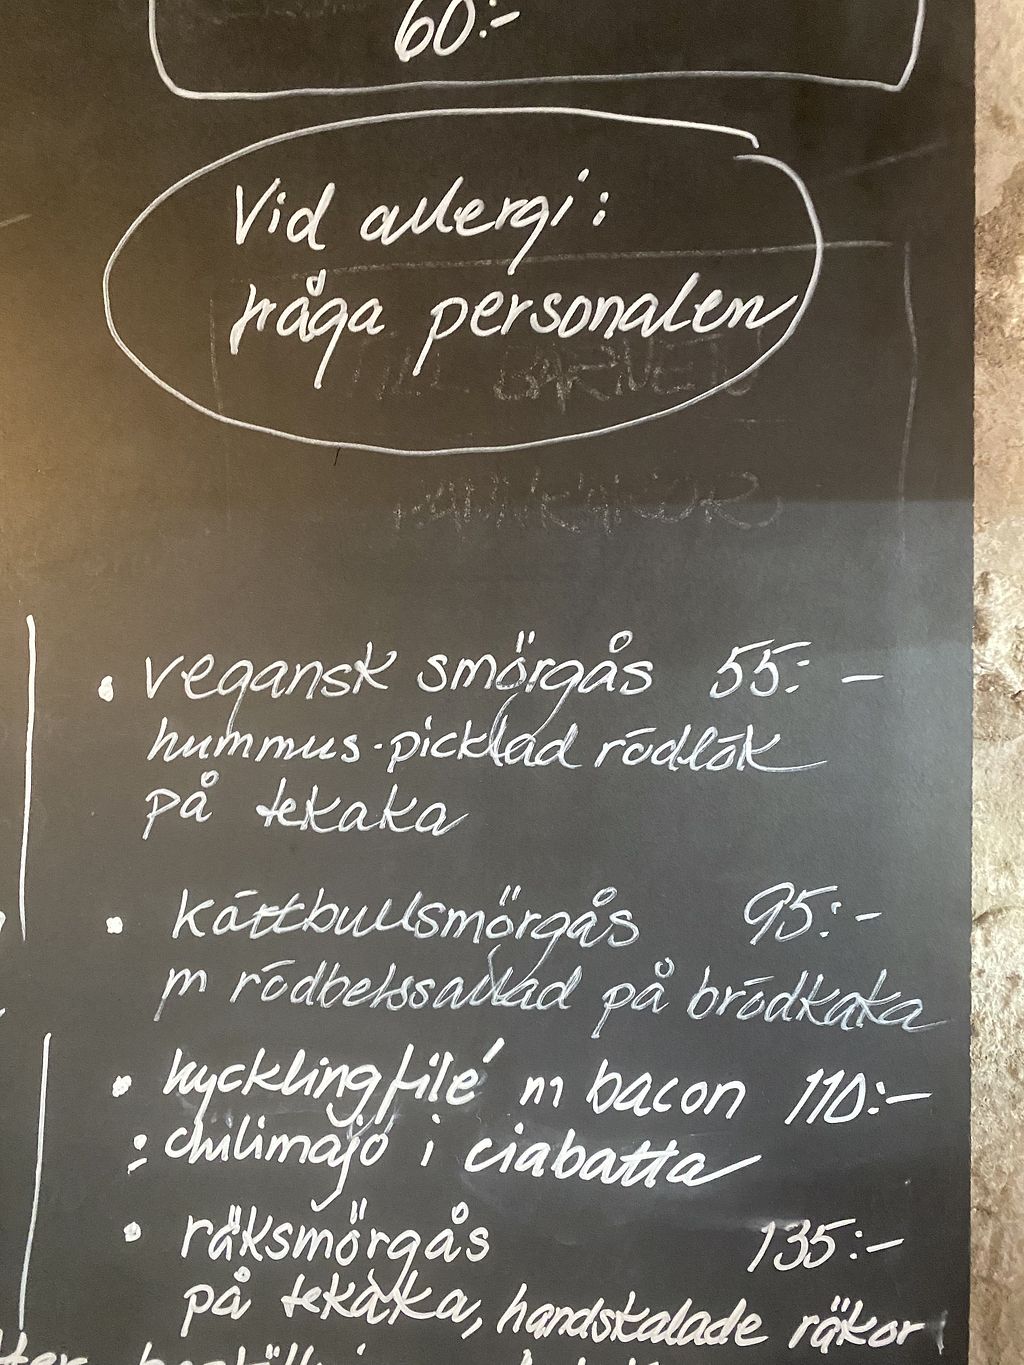 60:-
Vid allergi:
fråga personalen
• vegansk smörgås 55:-
hummus·picklad rödlök
på tekaka
• köttbullsmörgås 95:-
m rödbetssallad på brödkaka
• kycklingfilé m bacon 110:-
: chilimajo i ciabatta
• räksmörgås 135:-
på tekaka, handskalade räkor